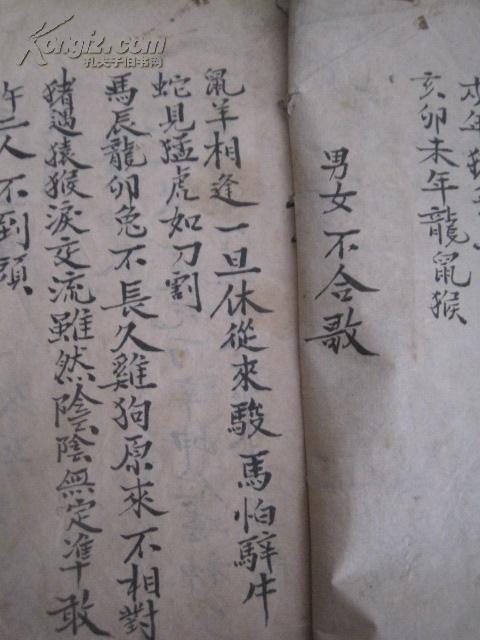 Kongfz.com
孔夫子旧书网
年
亥卯未年龍鼠猴
男女不合歌
鼠羊相逢一旦休從來駿馬怕騂牛
蛇見猛虎如刀割
馬辰龍卯兔不長久雞狗原來不相對
猪遇猿猴淚交流雖然陰陰無定準敢
二人不到頭